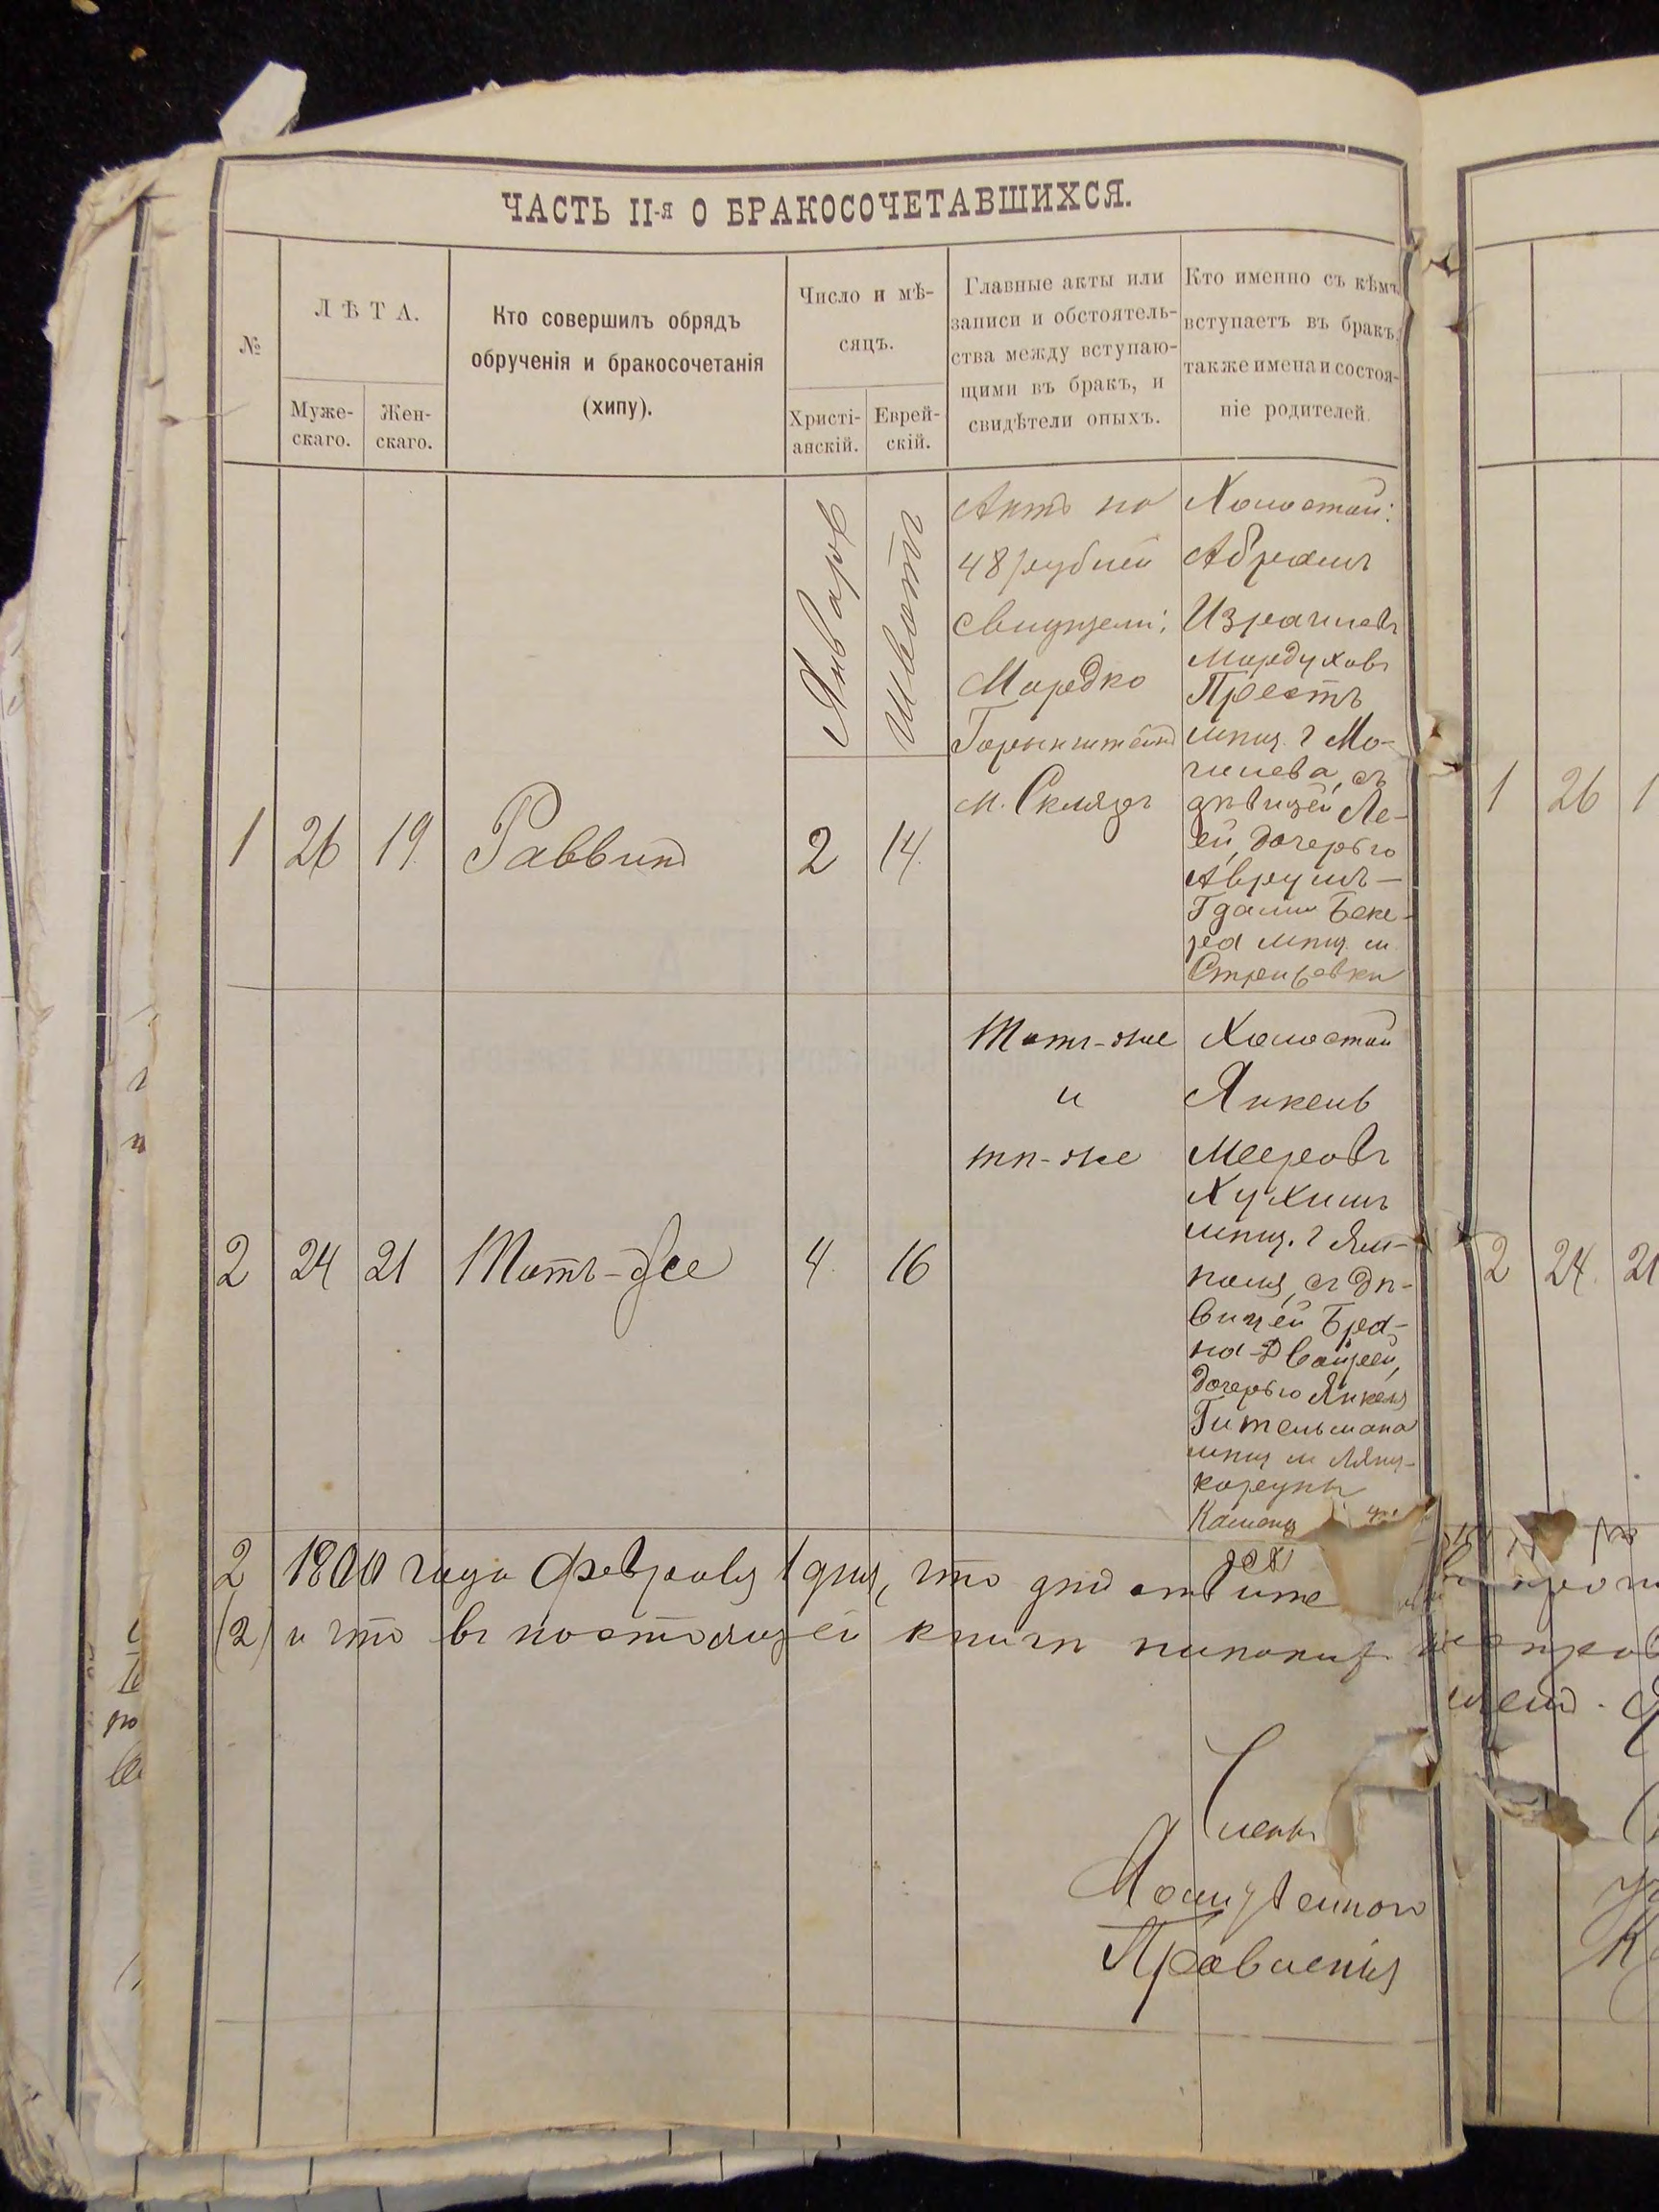 ЧАСТЬ II-я О БРАКОСОЧЕТАВШИХСЯ.
№
ЛѢТА.
Муже-
скаго.
Жен-
скаго.
Кто совершилъ обрядъ
обрученія и бракосочетанія
(хипу).
Число и мѣ-
сяцъ.
Христі-
анскій.
Еврей-
скій.
Главные акты или
записи и обстоятель-
ства между вступаю-
щими въ бракъ, и
свидѣтели оныхъ.
Кто именно съ кѣмъ
вступаетъ въ бракъ,
также имена и состоя-
ніе родителей.
Январь
Шеватъ
1
26
19.
Раввинъ
2
14.
Актъ на
48 рублей
Свидѣтели:
Мордко
М. Склядъ
Холостой:
Абрамъ
Израилевъ
Мордуховъ
Престъ
мѣщ. г. Мо-
гилева, съ
дѣвицей Ле-
ей, дочерью
Аврумъ-
Гдаліи Беке-
ра мѣщ. м.
2
24
21
Тотъ-же
4.
16
Тотъ-же
и
тѣ-же
Холостой
Янкель
Мееровъ
мѣщ. г. Ям-
поля, съ дѣ-
вицей Бра-
на-Двойрей,
дочерью Янкеля
Гительмана
мѣщ. м. Лянц-
коруны
Камен
2
1900 года Февраля 1 дня, что
(2)
и что въ настоящей книгѣ
Членъ
Правленія
1
26
1
2
24.
21